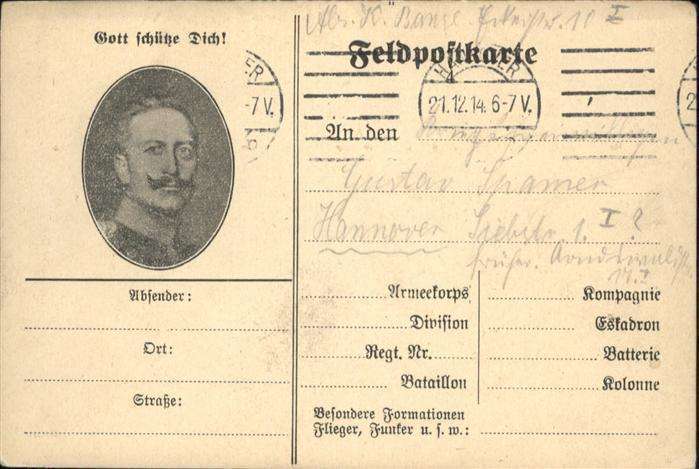 Gott schütze Dich!
Abs. K. Bange
I
Feldpostkarte
21.12.14. 6-7 V.
-7 V.
An den
Gustav Spamer
Hannover
1. I ?
früher.
Absender:
Ort:
Straße:
Armeekorps
Division
Regt. Nr.
Bataillon
Kompagnie
Eskadron
Batterie
Kolonne
Besondere Formationen
Flieger, Funker u. s. w.: